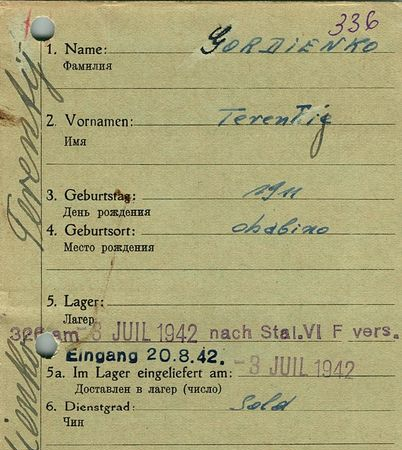 336
1. Name: GORDIENKO
Фамилия
2. Vornamen: Terentig
Имя
3. Geburtstag: 1911
День рождения
4. Geburtsort:
Место рождения
5. Lager:
Лагер
JUIL 1942 nach Stal. VI F vers.
Eingang 20.8.42. -3 JUIL 1942
5a. Im Lager eingeliefert am:
Доставлен в лагер (число)
6. Dienstgrad: Sold
Чин
Terentij